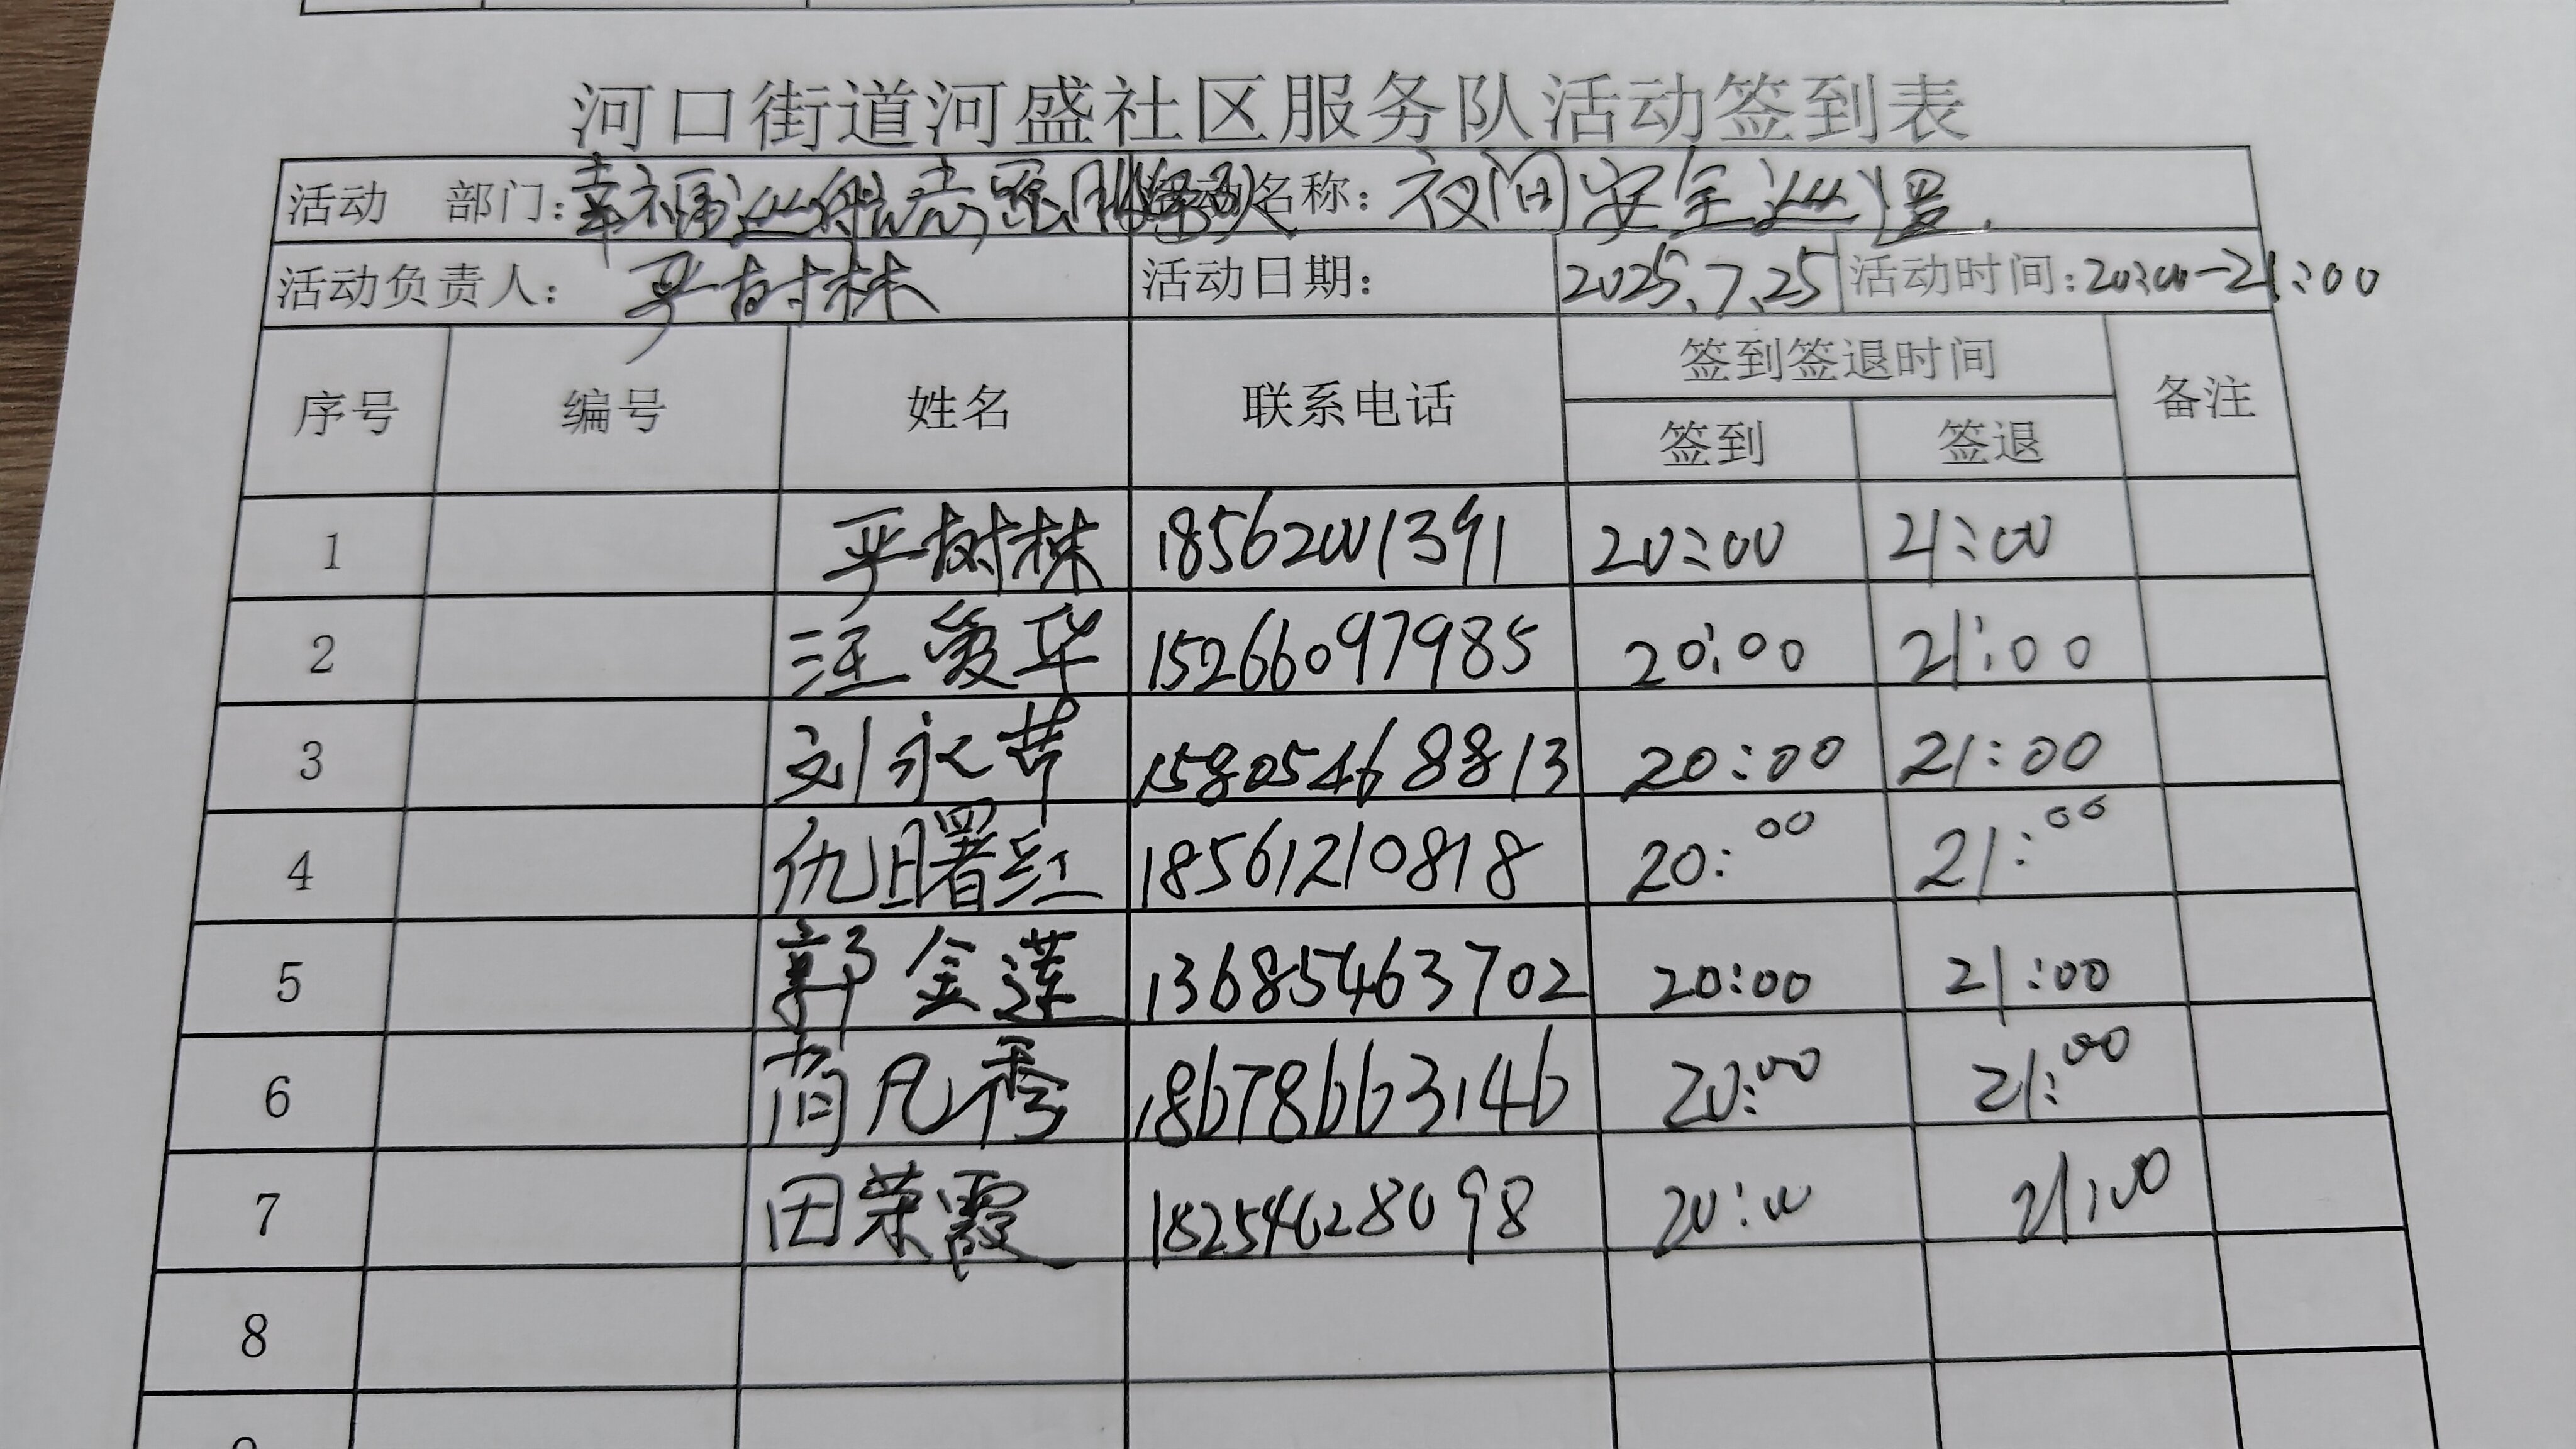 河口街道河盛社区服务队活动签到表
活动 部门：幸福巡航志愿服务队 活动名称：夜间安全巡逻.
活动负责人：严树林 活动日期： 2025.7.25 活动时间：20:00-21:00
序号 编号 姓名 联系电话 签到签退时间 备注
签到 签退
1 严树林 18562001391 20:00 21:00
2 汪爱华 15266097985 20:00 21:00
3 刘永 15805468813 20:00 21:00
4 仇曙红 18561210818 20:00 21:00
5 郭金莲 13685463702 20:00 21:00
6 秀 18678663146 20:00 21:00
7 田荣霞 18254628098 20:00 21:00
8